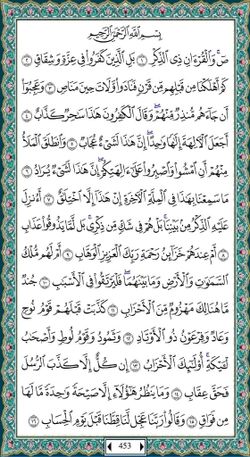 بِسْمِ ٱللَّهِ ٱلرَّحْمَٰنِ ٱلرَّحِيمِ
صٓ ۚ وَٱلْقُرْءَانِ ذِى ٱلذِّكْرِ ١ بَلِ ٱلَّذِينَ كَفَرُوا۟ فِى عِزَّةٍ وَشِقَاقٍ ٢
كَمْ أَهْلَكْنَا مِن قَبْلِهِم مِّن قَرْنٍ فَنَادَوا۟ وَّلَاتَ حِينَ مَنَاصٍ ٣ وَعَجِبُوٓا۟
أَن جَآءَهُم مُّنذِرٌ مِّنْهُمْ ۖ وَقَالَ ٱلْكَٰفِرُونَ هَٰذَا سَٰحِرٌ كَذَّابٌ ٤
أَجَعَلَ ٱلْءَالِهَةَ إِلَٰهًا وَٰحِدًا ۖ إِنَّ هَٰذَا لَشَىْءٌ عُجَابٌ ٥ وَٱنطَلَقَ ٱلْمَلَأُ
مِنْهُمْ أَنِ ٱمْشُوا۟ وَٱصْبِرُوا۟ عَلَىٰٓ ءَالِهَتِكُمْ ۖ إِنَّ هَٰذَا لَشَىْءٌ يُرَادُ ٦
مَا سَمِعْنَا بِهَٰذَا فِى ٱلْمِلَّةِ ٱلْءَاخِرَةِ إِنْ هَٰذَآ إِلَّا ٱخْتِلَٰقٌ ٧ أَءُنزِلَ
عَلَيْهِ ٱلذِّكْرُ مِنۢ بَيْنِنَا ۚ بَلْ هُمْ فِى شَكٍّ مِّن ذِكْرِى ۖ بَل لَّمَّا يَذُوقُوا۟ عَذَابِ
٨ أَمْ عِندَهُمْ خَزَآئِنُ رَحْمَةِ رَبِّكَ ٱلْعَزِيزِ ٱلْوَهَّابِ ٩ أَمْ لَهُم مُّلْكُ
ٱلسَّمَٰوَٰتِ وَٱلْأَرْضِ وَمَا بَيْنَهُمَا ۖ فَلْيَرْتَقُوا۟ فِى ٱلْأَسْبَٰبِ ١٠ جُندٌ
مَّا هُنَالِكَ مَهْزُومٌ مِّنَ ٱلْأَحْزَابِ ١١ كَذَّبَتْ قَبْلَهُمْ قَوْمُ نُوحٍ
وَعَادٌ وَفِرْعَوْنُ ذُو ٱلْأَوْتَادِ ١٢ وَثَمُودُ وَقَوْمُ لُوطٍ وَأَصْحَٰبُ
لْـَٔيْكَةِ ۚ أُو۟لَٰٓئِكَ ٱلْأَحْزَابُ ١٣ إِن كُلٌّ إِلَّا كَذَّبَ ٱلرُّسُلَ
فَحَقَّ عِقَابِ ١٤ وَمَا يَنظُرُ هَٰٓؤُلَآءِ إِلَّا صَيْحَةً وَٰحِدَةً مَّا لَهَا
مِن فَوَاقٍ ١٥ وَقَالُوا۟ رَبَّنَا عَجِّل لَّنَا قِطَّنَا قَبْلَ يَوْمِ ٱلْحِسَابِ ١٦
453